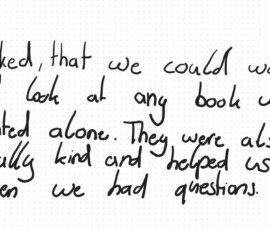 ked, that we could wa
look at any book w
ted alone. They were als
ally kind and helped us
en we had questions.